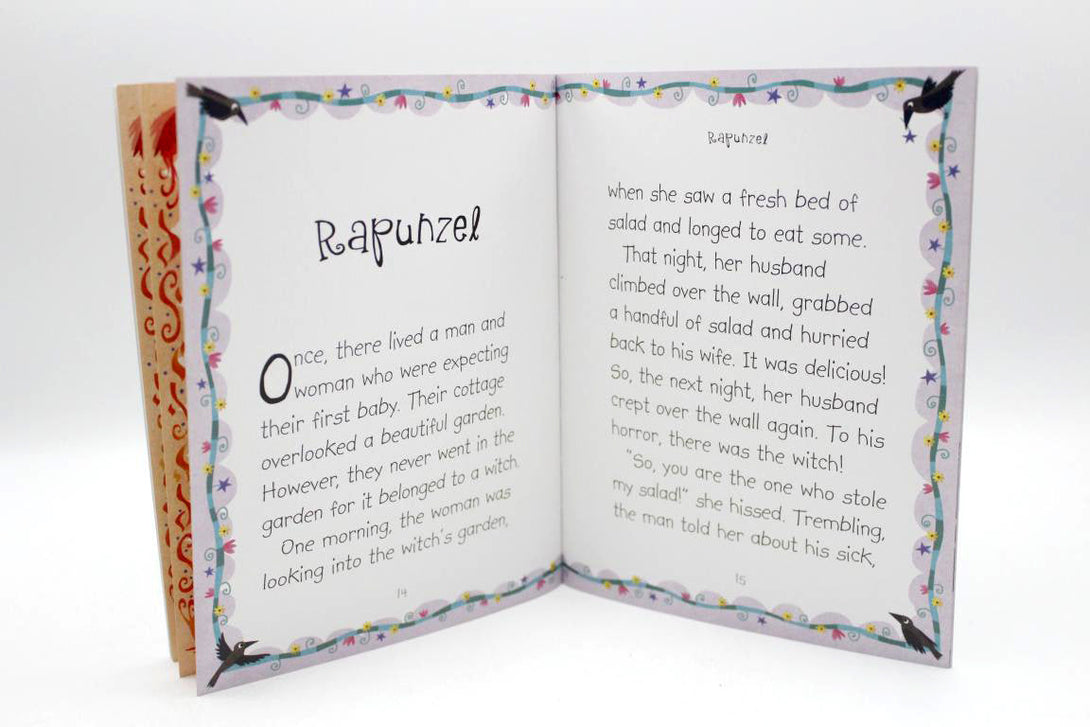 Rapunzel
Once, there lived a man and
woman who were expecting
their first baby. Their cottage
overlooked a beautiful garden.
However, they never went in the
garden for it belonged to a witch.
One morning, the woman was
looking into the witch's garden,
14
Rapunzel
when she saw a fresh bed of
salad and longed to eat some.
That night, her husband
climbed over the wall, grabbed
a handful of salad and hurried
back to his wife. It was delicious!
So, the next night, her husband
crept over the wall again. To his
horror, there was the witch!
"So, you are the one who stole
my salad!" she hissed. Trembling,
the man told her about his sick,
15